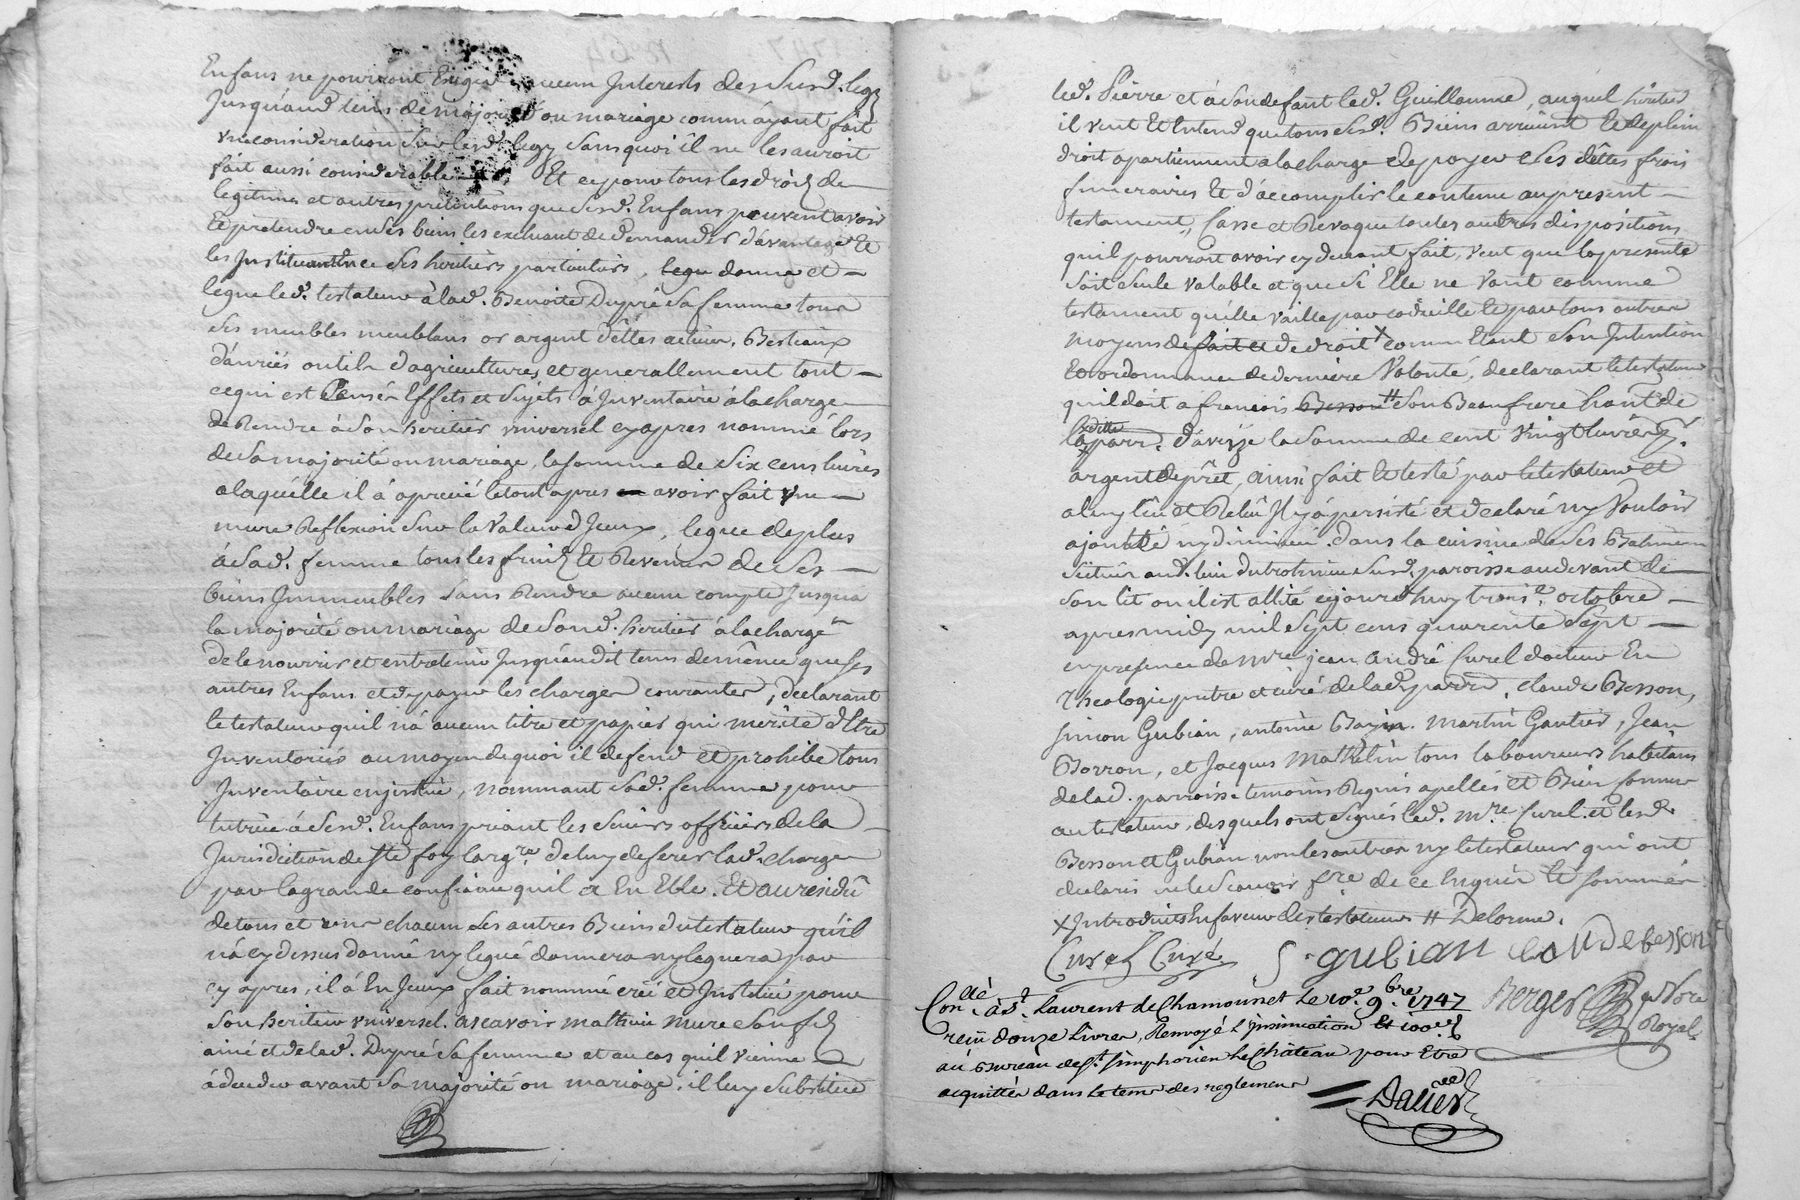 Enfans ne pourront Exiger aucun Interests des Susd. legz
Jusqu'aud. tems de majorité ou mariage comm'ayant fait
vne consideration Sur lesd. legz Sans quoi il ne les auroit
fait aussi considerable Et ce pour tous les droits de
legitime et autres pretentions que Sesd. Enfans peuvent avoir
Et pretendre en Ses biens les excluant de demander d'avantage Et
les Instituant Ses heritiers particuliers, legue donne et
legue led. testateur à lad. Benoite Dupré Sa femme tous
Ses meubles meublans or argent dettes actives, Bestiaux
danrées outils d'agricultures et generallement tout
ce qui est Censé Effets et Sujets à Inventaire à la charge
de Rendre à Son heritier vniversel cy apres nommé lors
de Sa majorité ou mariage, la Somme de Six cens livres
a laquelle il à aprecié le tout apres avoir fait vne
mure Reflexion Sur la Valeur d'Jceux, legue de plus
à Sad. femme tous les fruits Et Revenus de Ses
biens Immeubles Sans Rendre aucun compte Jusqua
la majorité ou mariage de Sond. heritier à la charge
de le nourrir et entretenir Jusqu'audit tems de même que Ses
autres Enfans et de payer les charges courantes, declarant
le testateur quil n'à aucun titre et papier qui merite d'Etre
Inventoriés au moyen de quoi il defend et prohibe tous
Inventaire en justice, nommant Sad. femme pour
tutrice à Sesd. Enfans priant les Sieurs officiers de la
Jurisdiction de Ste foy largre. de luy deferer lad. charge
par la grande confiance quil a En Elle. Et au residû
de tous et vns chacuns Ses autres Biens du testateur qu'il
n'à cy dessus donné ny legué donnera ny leguera par
cy apres, il à En Jceux fait nommé creé et Institué pour
Son heritier vniversel ascavoir mathieu mure Son fils
ainé et de lad. Dupré Sa femme et au cas quil vienne
à deceder avant Sa majorité ou mariage, il luy Substitue
led. Pierre et à Son defaut led. Guillaume, auquel heritier
il veut Et Entend que tous Sesd. Biens arrivent Et de plein
droit apartiennent a la charge de payer Ses dêttes frais
funeraires Et d'accomplir le contenu au present
testament, Casse et Revoque toutes autres dispositions
quil pourroit avoir cy devant fait, veut que la presente
Soit Seule valable et que Si Elle ne vaut comme
testament qu'elle vaille par codicille Et par tous autres
moyens de fait et de droit X comm'Etant Son Intention
Et ordonnance de derniere Volonté, declarant le testateur
quil doit a francois Besson # Son Beaufrere hant de
ladite parr. d'aveize la Somme de cent vingt livres
argent de prêt, ainsi fait Et testé par le testateur et
a luy lû et Relû Jl y à persisté et declaré n'y Vouloir
ajouté ny diminué. Dans la cuisine de Ses Batimens
Situés aud. lieu Susd. paroisse au devant de
Son lit ou il est allité cejourdhuy trois.e octobre
apres midy mil Sept cens quarente Sept
en presence de mre jean andré Curel docteur En
Theologie pretre et curé de lad. parr., claude Besson,
simon Gubian, antoine Bazin, martin Gautier, Jean
Borron, et Jacques Mathelin tous laboureurs habitans
de lad. parroisse temoins Requis apellés et Bien connus
au testateur, desquels ont Signés led. mre. Curel, et lesd.
Besson et Gubian non les autres ny le testateur qui ont
declarés ne le Scavoir fre. de ce Enquis Et Sommés
X Introduits En faveur des testateurs # Delorme.
Curel Curé S. gubian claude besson
Berger Notre Royal
Conllé à St. Laurent de Chamousset Le 10e 9bre 1747
reçu douze Livres, Renvoyé l'insinuation Et 100e d
au Bureau de St. simphorien Le Château pour Etre
acquittés dans Le tems des reglemens
Dalier